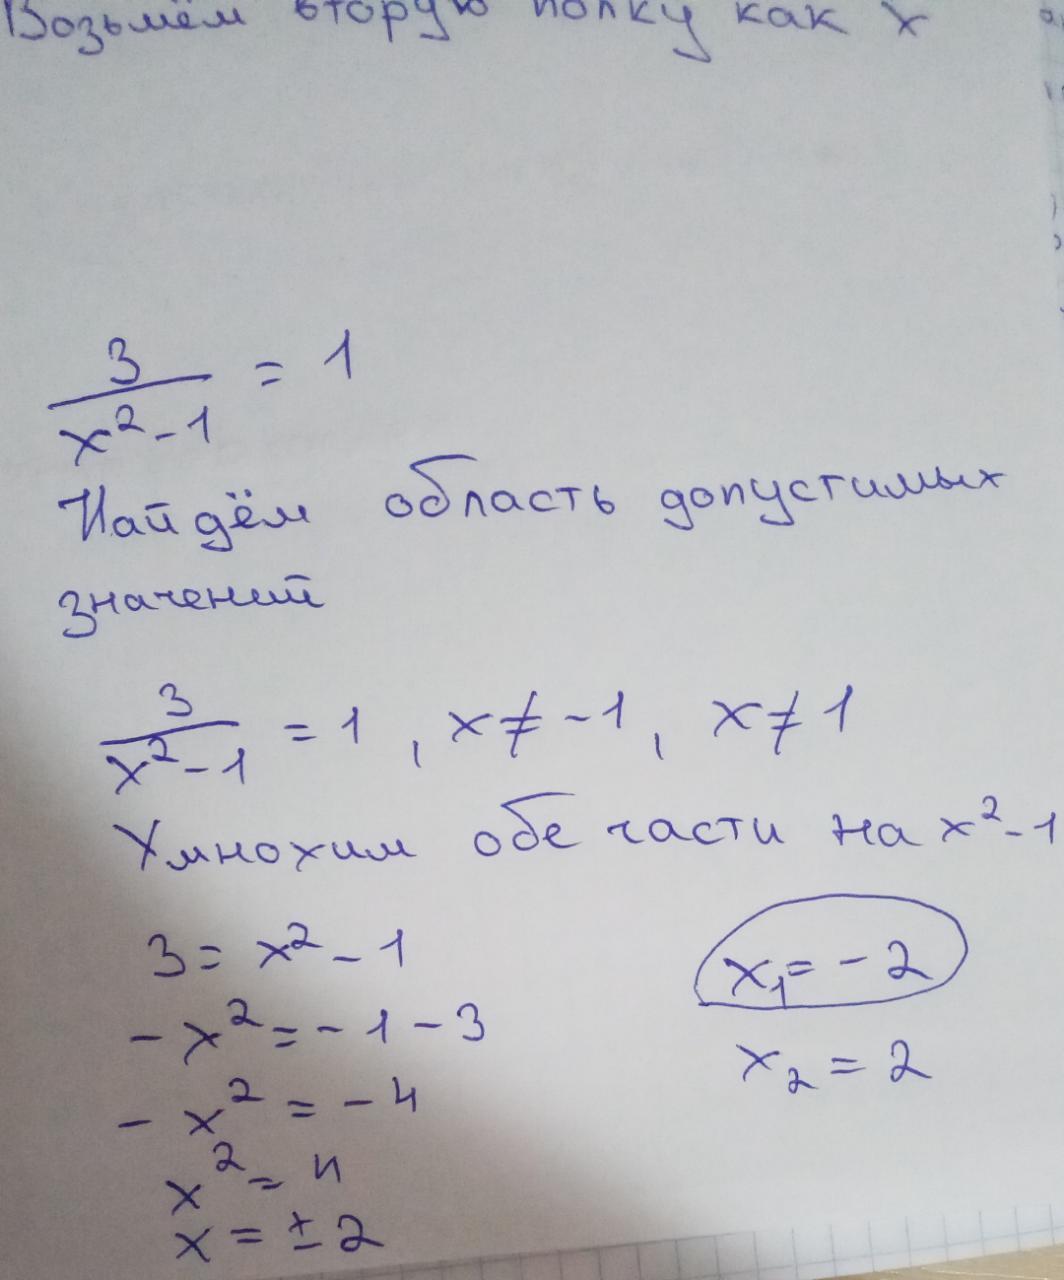 Возьмём вторую полку как х
3
——— = 1
x² - 1
Найдём область допустимых
значений
3
——— = 1 , x ≠ -1, x ≠ 1
x² - 1
Умножим обе части на x² - 1
3 = x² - 1
- x² = - 1 - 3
- x² = - 4
x² = 4
x = ± 2
x₁ = - 2
x₂ = 2